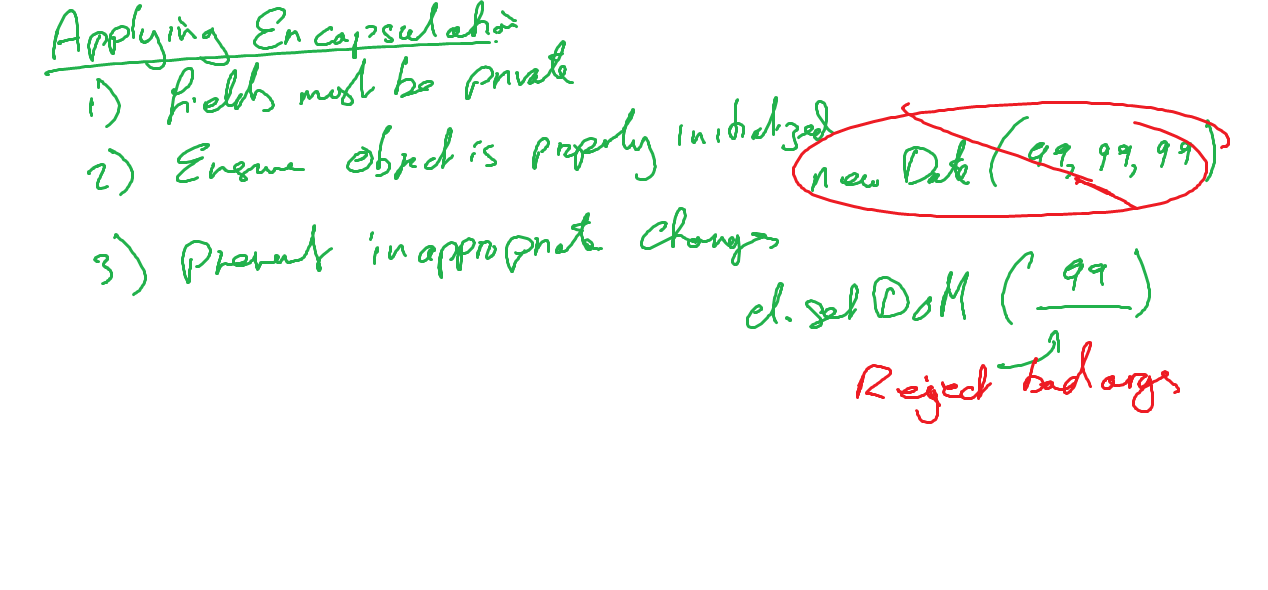 Applying Encapsulation
1) fields must be private
2) Ensure object is properly initialized
new Date (99, 99, 99)
3) Prevent inappropriate changes
d.setDoM (99)
Reject bad args